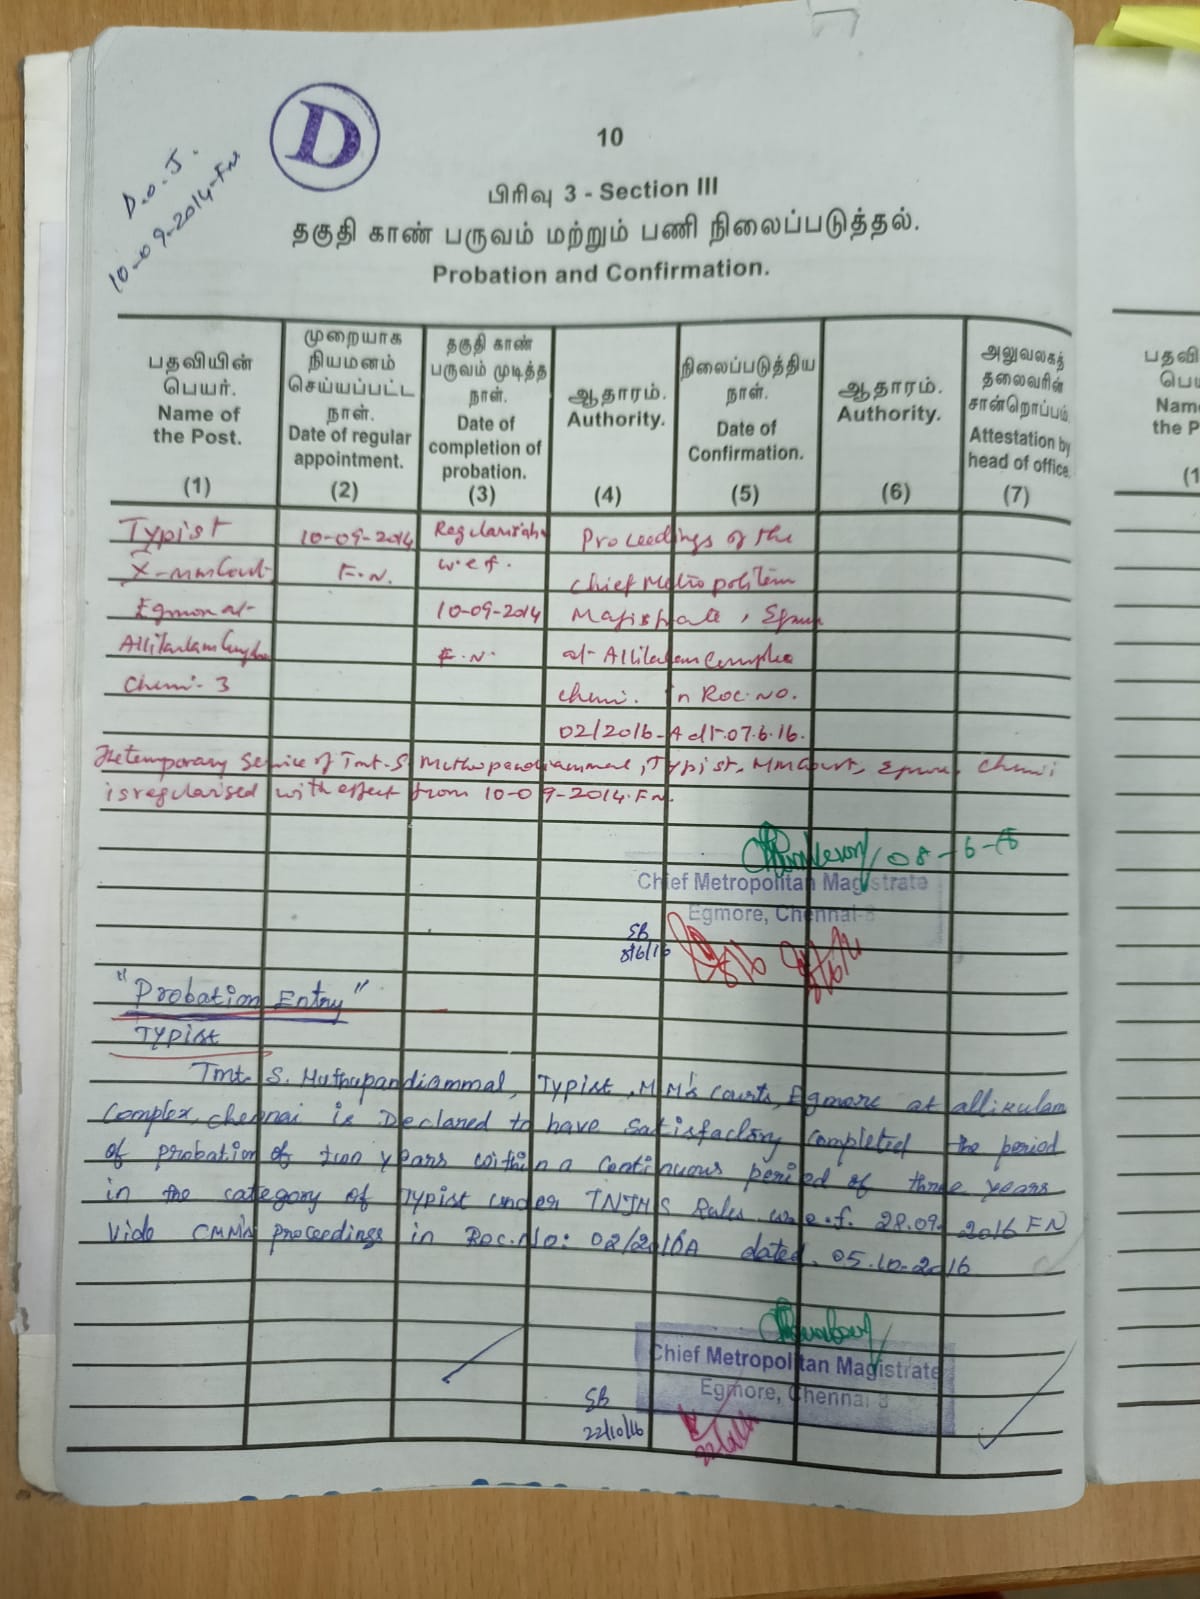 D
D.O.J.
10-09-2014-FN
10
பிரிவு 3 - Section III
தகுதி காண் பருவம் மற்றும் பணி நிலைப்படுத்தல்.
Probation and Confirmation.
பதவியின் பெயர். Name of the Post. (1)
முறையாக நியமனம் செய்யப்பட்ட நாள். Date of regular appointment. (2)
தகுதி காண் பருவம் முடித்த நாள். Date of completion of probation. (3)
ஆதாரம். Authority. (4)
நிலைப்படுத்திய நாள். Date of Confirmation. (5)
ஆதாரம். Authority. (6)
அலுவலகத் தலைவரின் சான்றொப்பம். Attestation by head of office. (7)
Typist 10-09-2014 Proceedings of the
X-MM Court F.N. w.e.f. Chief Metropolitan
Egmore at 10-09-2014 Magistrate, Egmore
F.N. at Allikulam Complex
Chennai-3 Chennai. in Roc.No.
02/2016-A dt.07.6.16.
The temporary Service of Tmt. S. Muthupandiammal, Typist, MM Court, Egmore, Chennai
is regularised with effect from 10-09-2014.FN.
08-6-16
Chief Metropolitan Magistrate
Egmore, Chennai-8
SB
8/6/16
"Probation Entry"
Typist
Tmt. S. Muthupandiammal, Typist, M.M's Courts, Egmore at allikulam
Complex, chennai is Declared to have Satisfactory completed the period
of probation of two years within a continuous period of three years
in the category of Typist under TNJMS Rules w.e.f. 28.09.2016 FN
Vide CMM's proceedings in Roc.No: 02/2016A dated. 05.10.2016
Chief Metropolitan Magistrate
Egmore, Chennai 8
SB
22/10/16
பதவி
Name
the P
(1